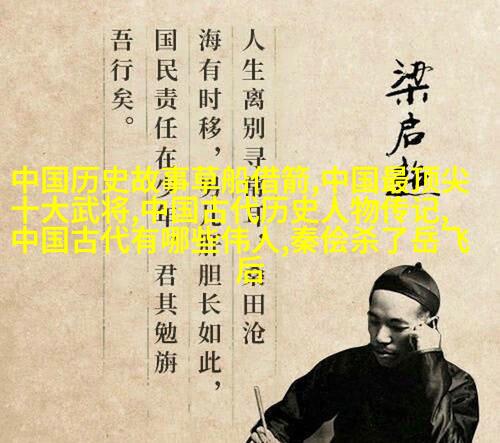 中国历史故事草船借箭,中国最顶尖
十大武将,中国古代历史人物传记,
中国古代有哪些伟人,秦侩杀了岳飞
后
人生离别寻常 田沧
海有时移，男儿 胆长如此，
国民责任在少年 君其勉旃
吾行矣。
梁启超